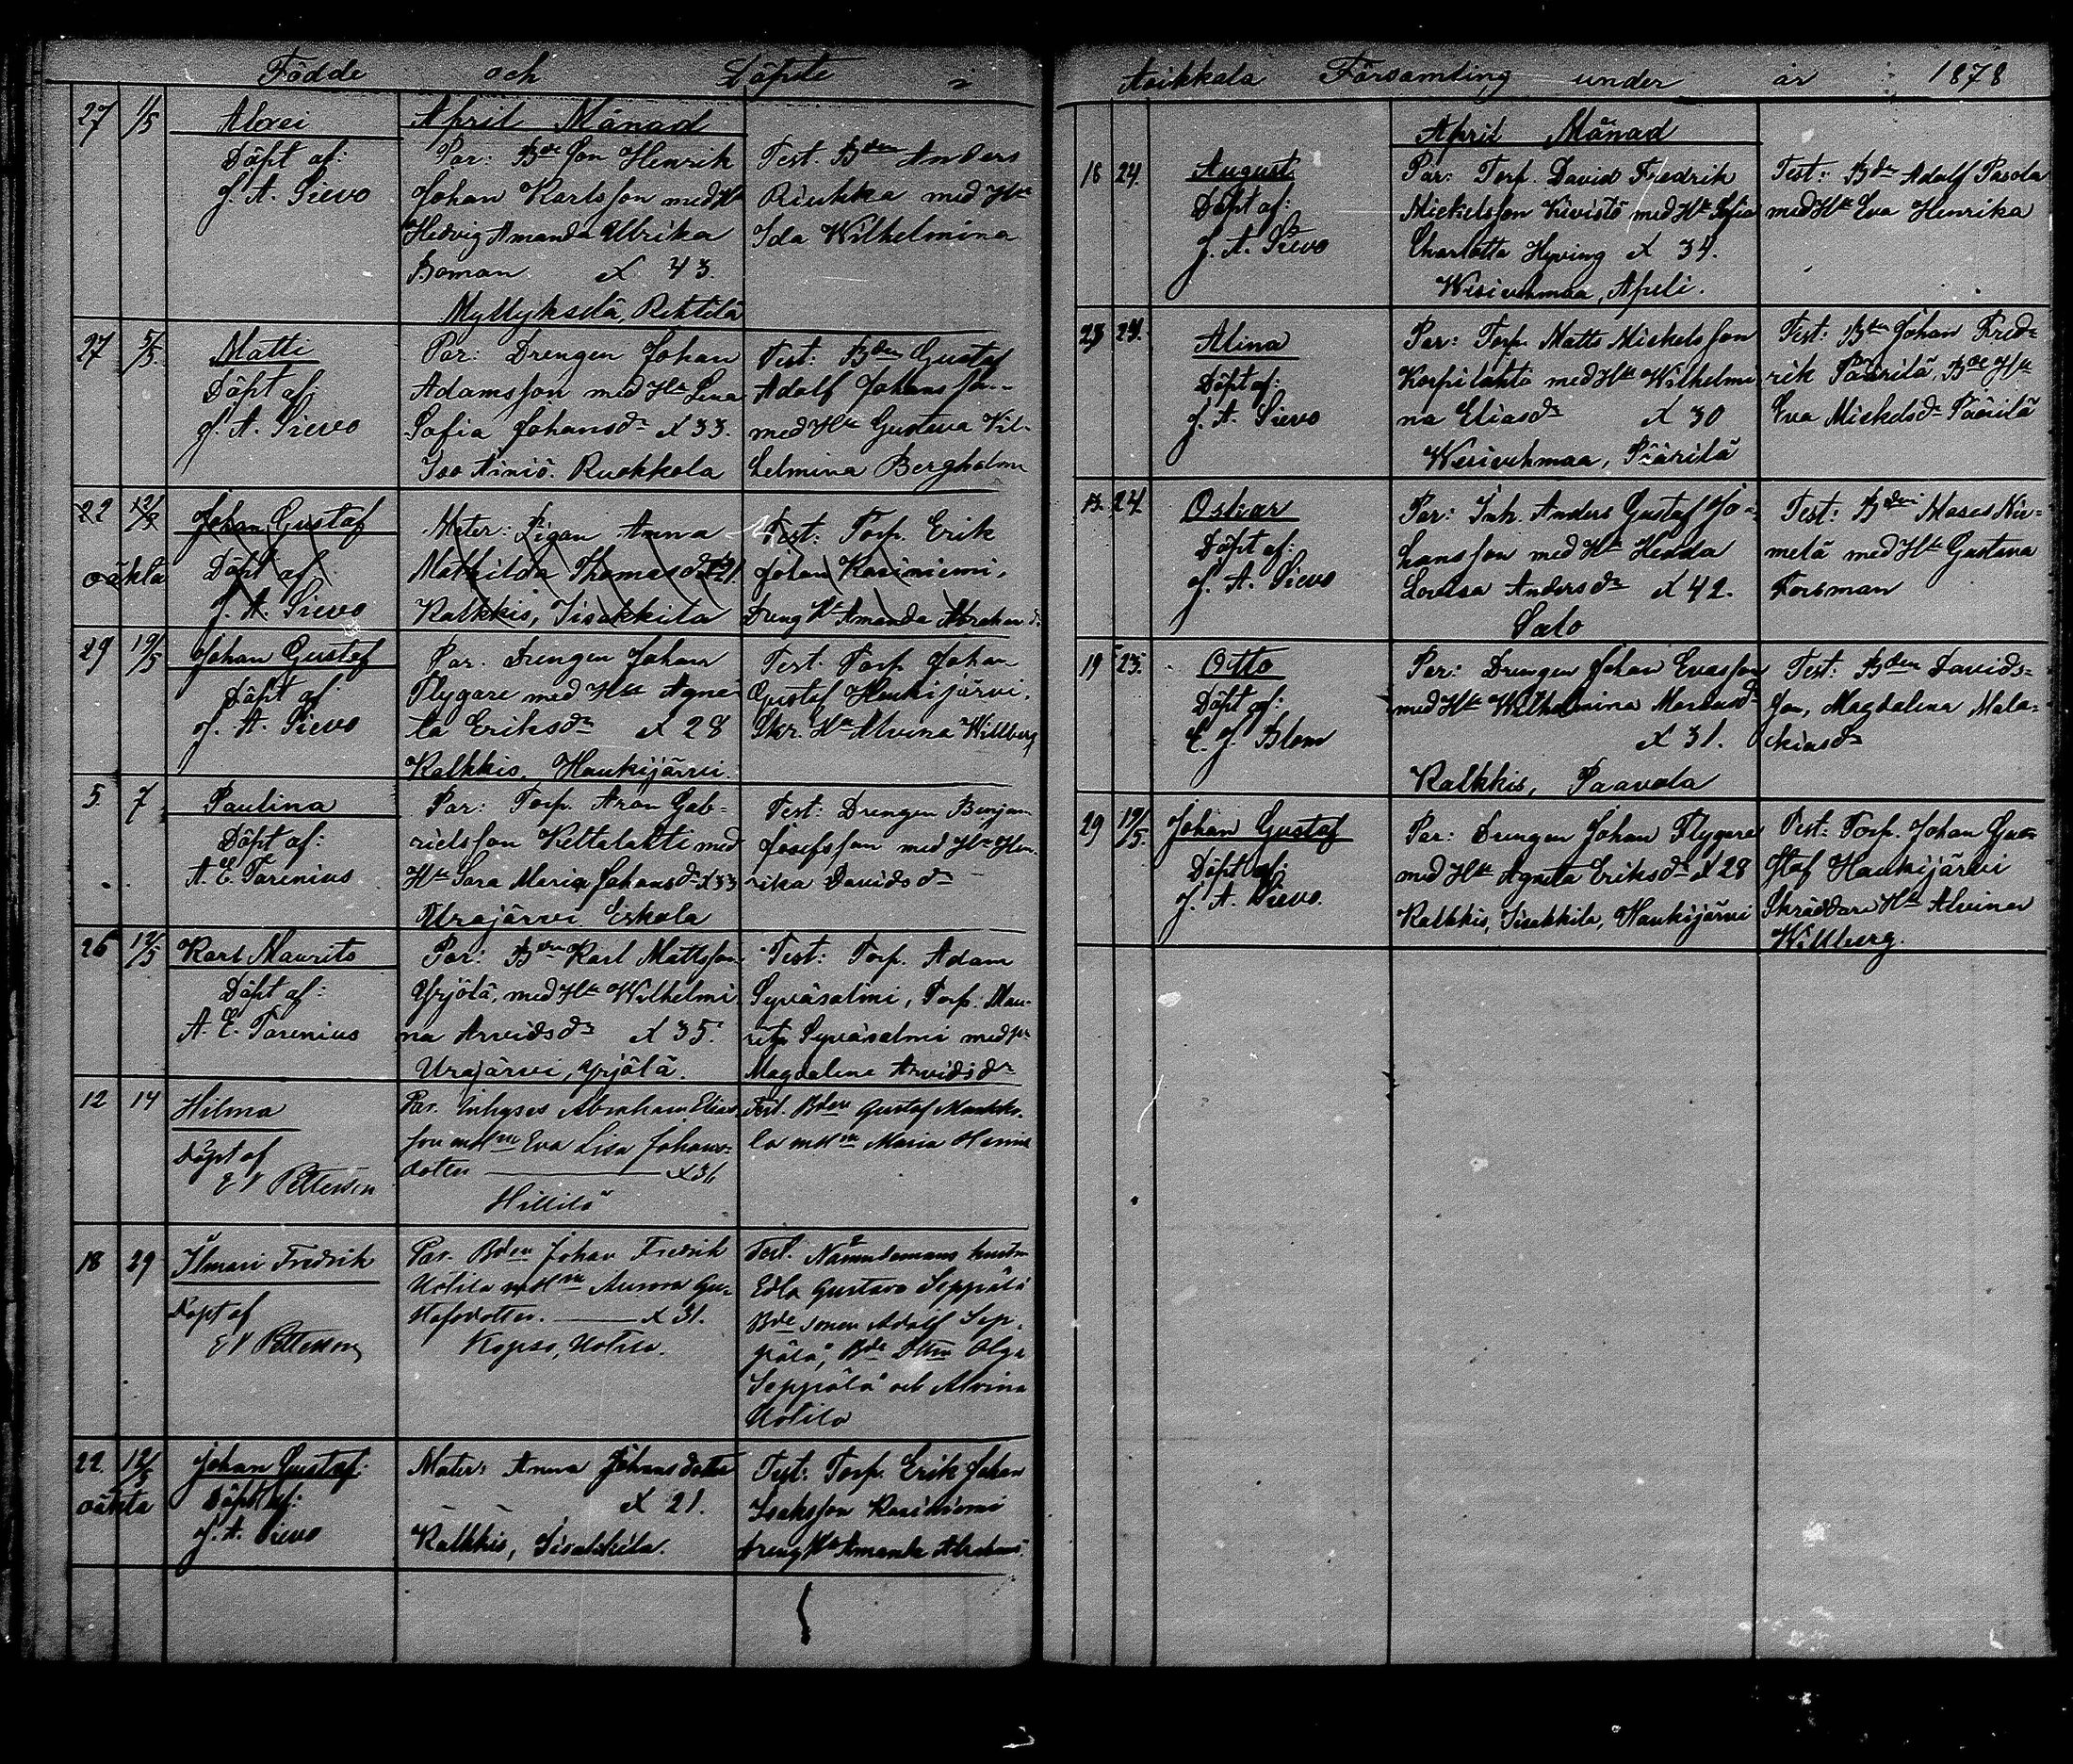 Födde och Döpte i
27 1/5 Alexei
Döpt af:
J. A. Sievo
April Månad
Par: Bde Son Henrik
Johan Karlsson med H.
Hedvig Amanda Ulrika
Boman X 43.
Myllykselä,
Test. Bden Anders
med Hu
Ida Wilhelmina
27 5/5. Matti
Döpt af:
J. A. Sievo
Par: Drengen Johan
Adamsson med Hu Lena
Sofia Johansdr X 33.
Iso Äiniö. Ruokkola
Test: Bden Gustaf
Adolf Johansson
med Hu Gustava Vil-
helmina Bergholm
22 12/5 Johan Gustaf
oäkta Döpt af
J. A. Sievo
Mater: Pigan Anna
Mathilda Thomasdr X 21.
Kalkkis, Iisakkila
Test: Torp. Erik
Johan Kasiniemi,
Dreng Hu Amanda Abraham d:
29 19/5 Johan Gustaf
Döpt af
J. A. Sievo
Par. Drengen Johan
Flygare med Hu Agne
ta Eriksdr X 28
Kalkkis, Haukijärvi.
Test. Torp Johan
Gustaf Haukijärvi.
Skr. Hu Alvina Willberg
5. 7 Paulina
Döpt af:
A. E. Tarenius
Par: Torp. Aron Gab-
rielsson Keltalahti med
Hu Sara Maria Johansdr X 33
Urajärvi Eskola
Test: Drengen Benjam
Josefsson med Hu Hen-
rika Davidsdr
26 12/5 Karl Maurits
Döpt af:
A. E. Tarenius
Par: Bden Karl Mattsson
Yrjölä, med Hu Wilhelmi
na Arvidsdr X 35.
Urajärvi, Yrjölä.
Test: Torp. Adam
Syväsalmi, Torp: Mau-
rits Syväsalmi med Hu
Magdalena Arvidsdr
12 14 Hilma
Döpt af
E V Pettersson
Par. Inhyses Abraham Elias
son m H Eva Lisa Johans-
dotter X 36
Hillilä
Test. Bden Gustaf
la m H Maria
18 29 Ilmari Fredrik
Döpt af
E V Pettersson
Par. Bden Johan Fredrik
Uotila m H Aurora Gus-
tafsdotter. X 31.
Kopso, Uotila.
Test. Nämndemans hustru
Edla Gustava Seppälä
Bde sonen Adolf Sep-
pälä, Bde Dttrn Olga
Seppälä och Alvina
Uotila
22. 12/5 Johan Gustaf:
oäkta Döpt af:
J. A. Sievo
Mater: Anna Johansdotter
X 21.
Kalkkis, Iisakkila.
Test: Torp. Erik Johan
Isaksson Kasiniemi
Dreng Hu Amanda Abrahams
Asikkala Församling under år 1878
April Månad
18 24. August
Döpt af:
J. A. Sievo
Par: Torp. David Fredrik
Mickelsson Kivistö med Hu Sofia
Charlotta Hyving X 34.
Wesivehmaa, Apeli.
Test: Bdn Adolf Pasola
med Hu Eva Henrika
23 24. Alina
Döpt af:
J. A. Sievo
Par: Torp. Matts Mickelsson
Korpilahti med Hu Wilhelmi
na Eliasdr X 30
Wesivehmaa, Päärilä
Test: Bden Johan Fred-
rik Päärilä, Bde Hu
Eva Mickelsdr Päärilä
13. 24. Oskar
Döpt af:
J. A. Sievo
Par: Inh. Anders Gustaf Jo-
hansson med Hu Hedda
Lovisa Andersdr X 42.
Salo
Test: Bden Moses Nie-
melä med Hu Gustava
Forsman
19 23. Otto
Döpt af:
C. J. Blom
Par: Drengen Johan Evasson
med Hu Wilhelmina
X 31.
Kalkkis, Paavola
Test: Bden Davids-
son, Magdalena Mala-
kiasdr
29 19/5. Johan Gustaf
Döpt af:
J. A. Sievo.
Par: Drengen Johan Flygare
med Hu Agneta Eriksdr X 28
Kalkkis, Iisakkila, Haukijärvi
Test: Torp. Johan Gus-
staf Haukijärvi
Skräddare Hu Alvina
Willberg.